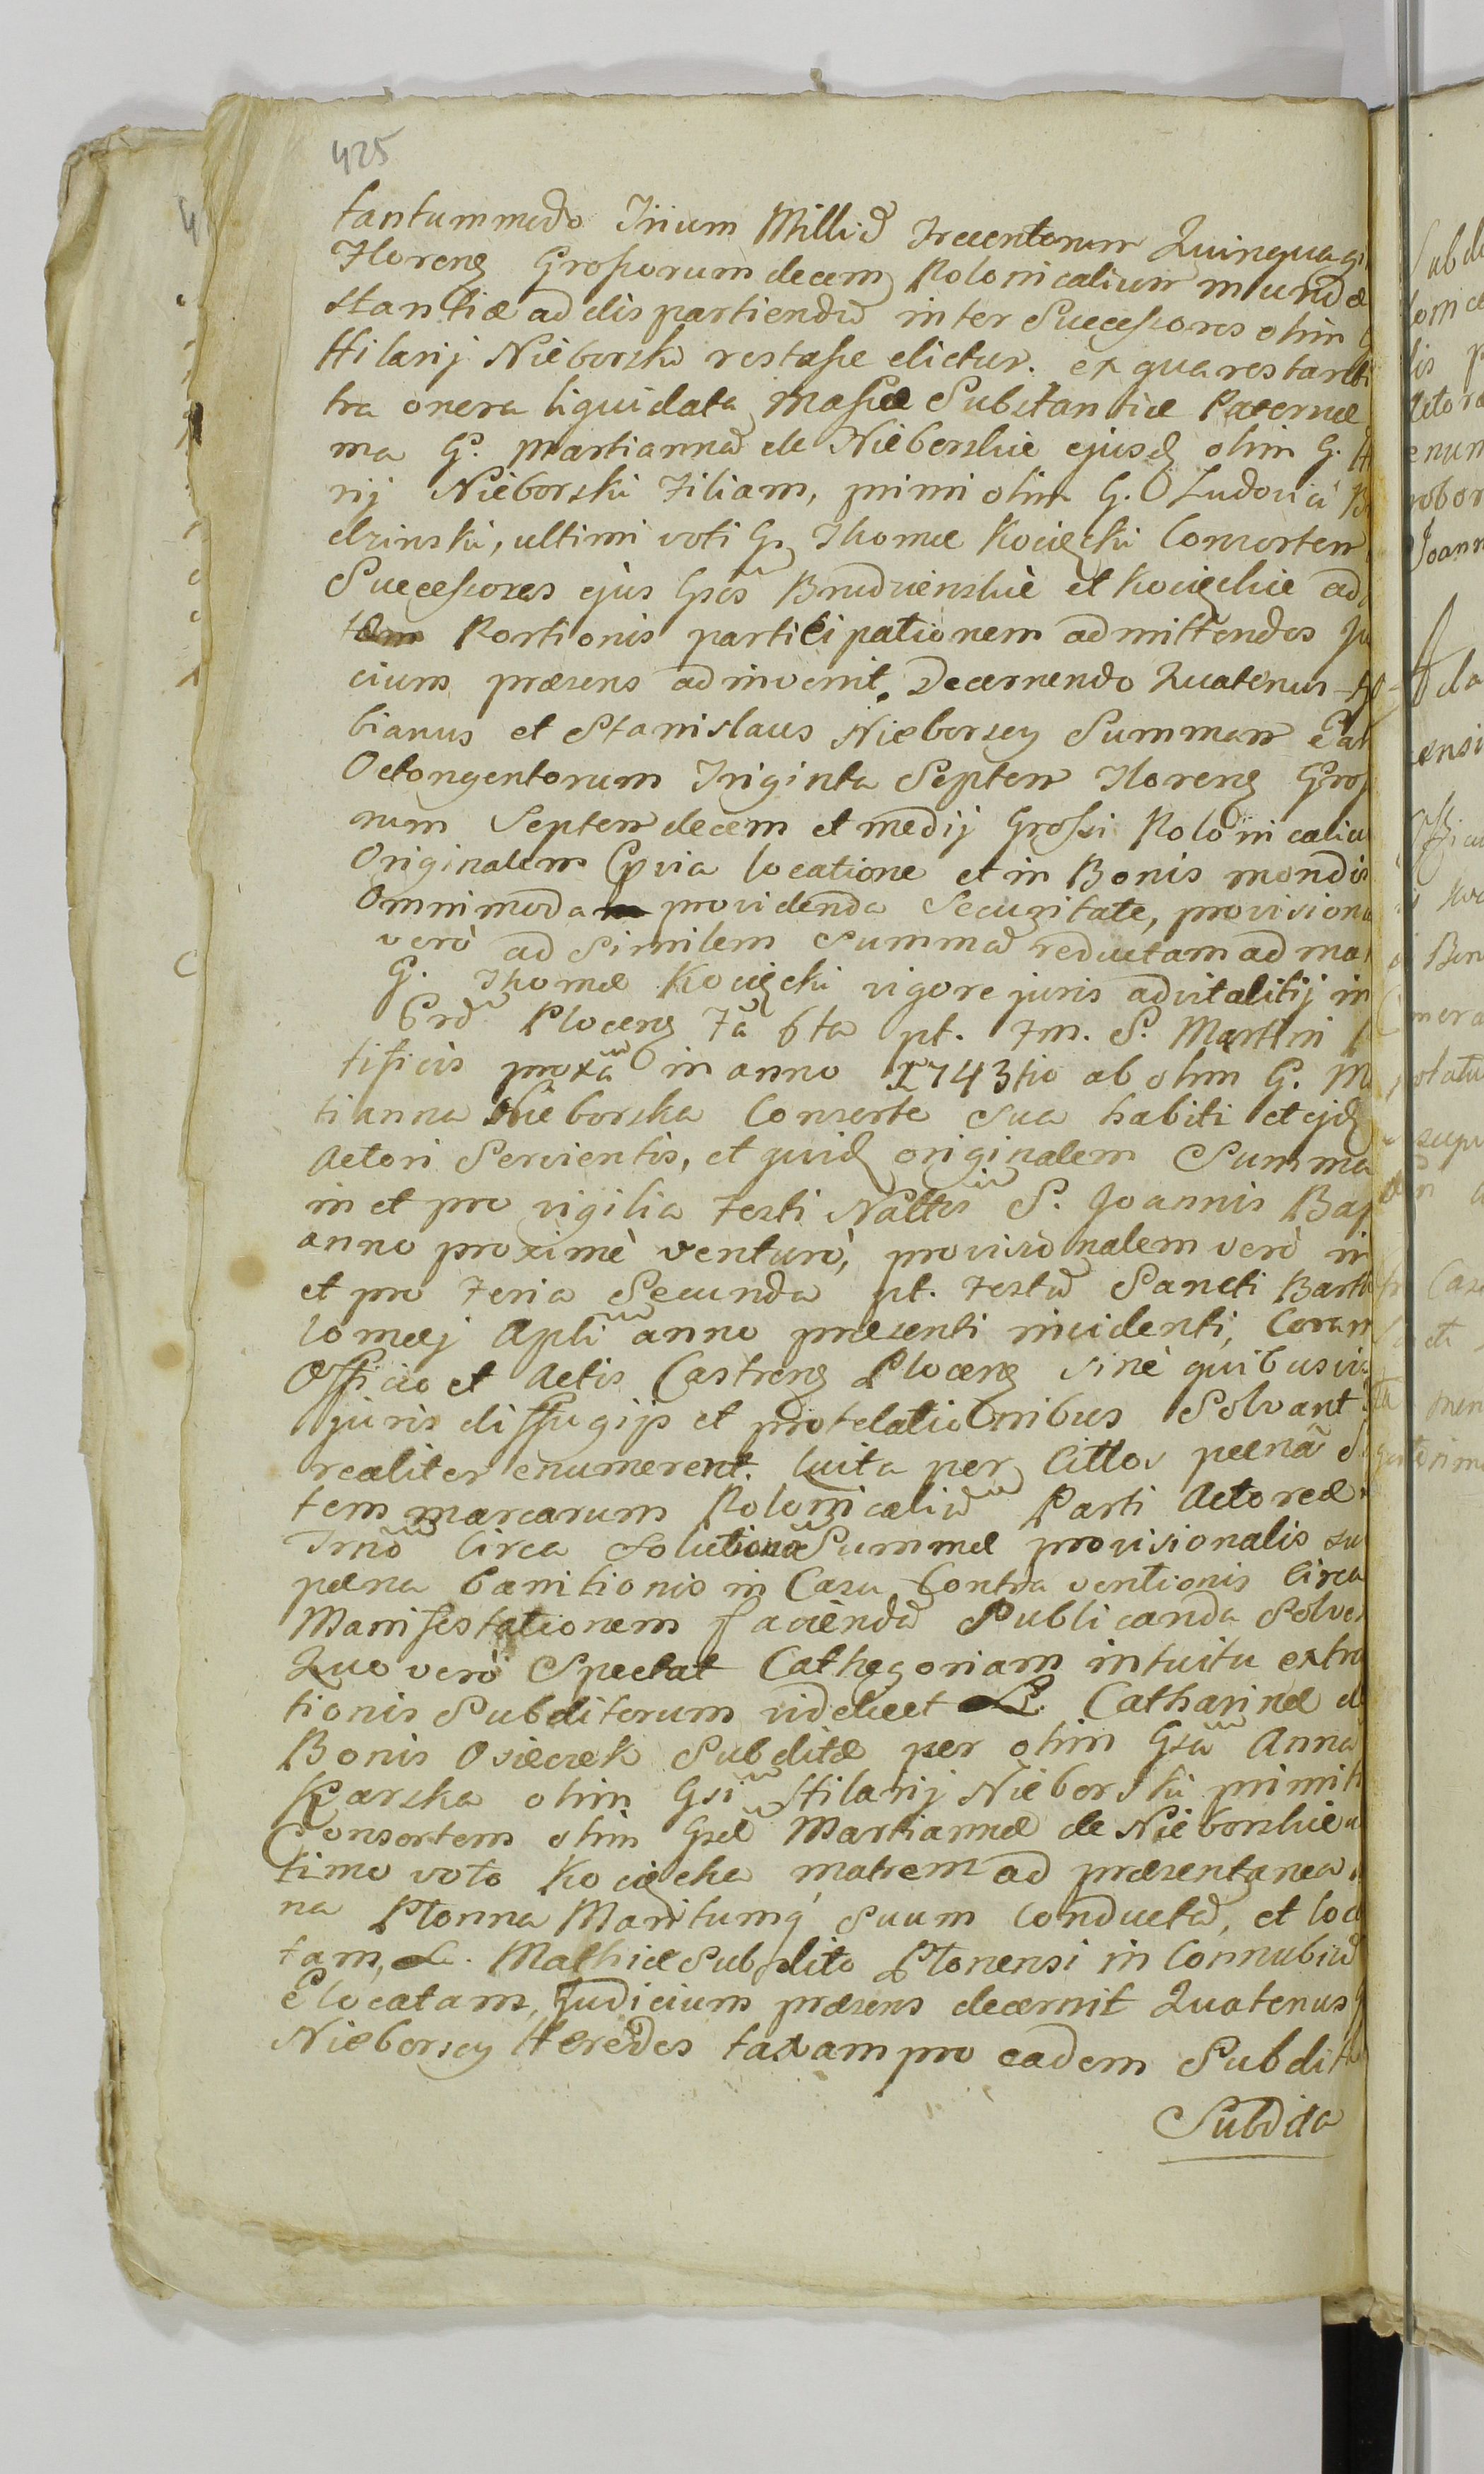 425
tantummodo Trium Milliū Trecentorum Quinquagi
Floreng Grossorum decem Polonicalium in unda
stantiæ ad dispartiendū inter Successores olim G
Hilarij Nieborski restasse elictur. ex qua restanti
tra onera liquidata Massæ Substantiæ Paternæ
ma G. Martiannā de Nieborskie ejusd olim G. H
rij Nieborski Filiam, primi olim G. O Ludovici B
dzinski, ultimi voti G. Thomæ Kocięcki Consortem
Successores ejus Gsos Brudzienskie et Kocięckie ad
tam Portionis participationem admittendos Ju
cium præsens adinvenit. Decernendo Quatenus
bianus et Stanislaus Nieborscy Summam
Octongentorum Triginta Septem Floreng Gros
rum Septemdecem et medij Grossi Polonicaliu
Originalem Cpvia locatione et in Bonis mondis
Omnimoda providenda Securitate, provisiona
verò ad similem Summā reductam ad ma
G. Thomæ Kocięcki vigore juris advitalitij in
Crd Ploceng Fā 6ta pt. Fm. S. Martini
tificis proxā in anno 1743tio ab olim G. M
tianna Nieborska Consorte sua habiti et ejd
Actori Servientis, et quid originalem Summa
in et pro vigilia Festi Nāltis S. Joannis Bap
anno proximè venturò, provisionalem verò in
et pro Feria Secunda pt. Festū Sancti Barth
lomæj Apli anno præsenti incidenti, Coram
Officio et Actis Castreng Ploceng sinè quibusvis
juris diffugijs et protelationibus Solvant
realiter enumerent. Quita per Cittos pænā
tem marcarum Polonicaliū Parti Actoreæ
Irnō Circa Solutionē Summæ provisionalis su
pæna banitionis in Casu Contraventionis Circa
Manifestationem faciendā Publicanda Solve
Quo verò Spectat Cathegoriam intuitu extra
tionis Subditorum videlicet L. Catharinæ d
Bonis Osieczek Subditæ per olim Gsā Annā
Karska olim Gsi Hilarij Nieborski primit
Consortem olim Gsæ Martiannæ de Nieborskie u
timo voto Kocięcka matrem ad præsentanea
na Płonna Maritumq́ Suum Conductā, et loc
tam, L. Mathiæ Subdito Płonensi in Connubiū
Elocatam, Judicium præsens decernit Quatenus
Nieborscy Heredes taxam pro eadem Subdit
Subdita